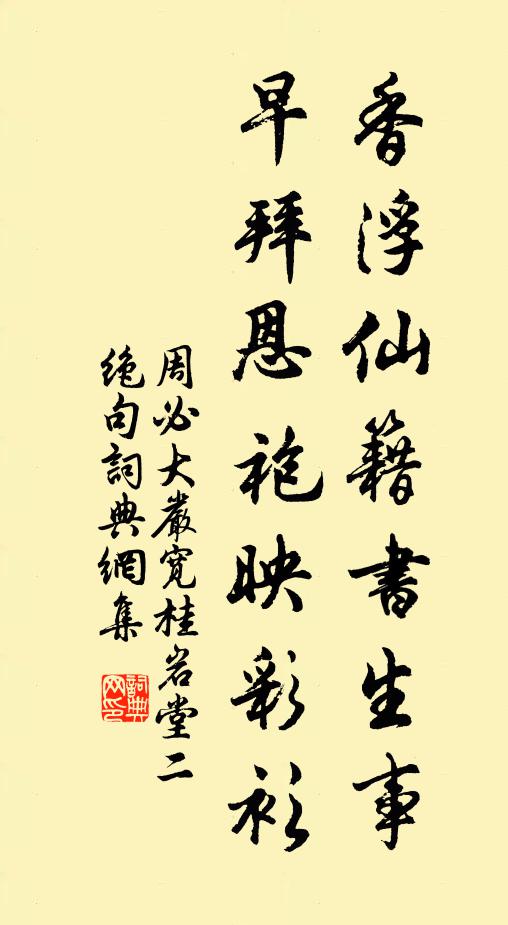 香浮仙籍書生事
早拜恩袍映彩衫
周必大嚴寬桂岩堂二
絶句詞典網集
詞典网印